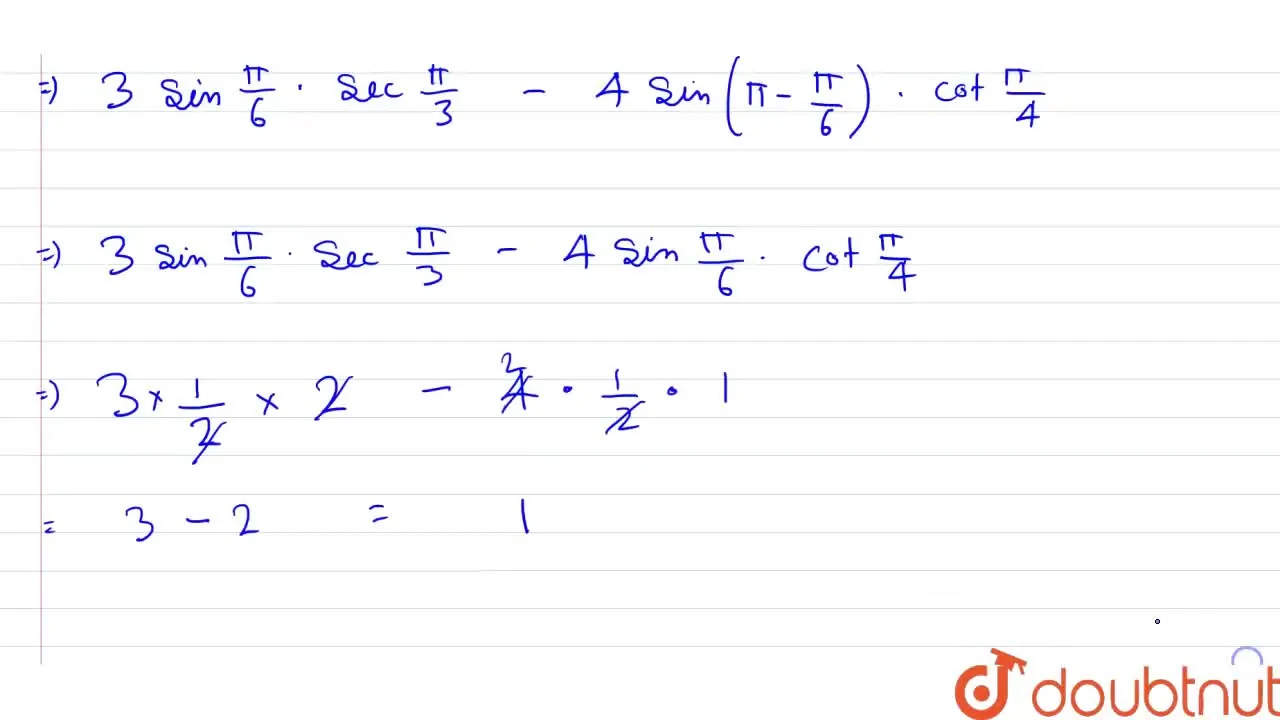 =) 3 sin π/6 · sec π/3 - 4 sin(π - π/6) · cot π/4
=) 3 sin π/6 · sec π/3 - 4 sin π/6 · cot π/4
=) 3 × 1/2 × 2 - 4 2 · 1/2 · 1
= 3 - 2 = 1
doubtnut